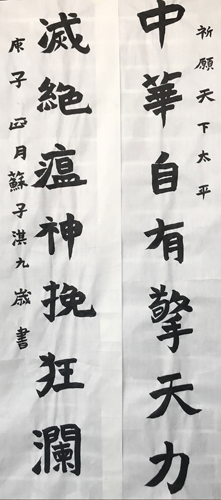 祈願天下太平
中華自有擎天力
滅絕瘟神挽狂瀾
庚子正月蘇子淇九歲書